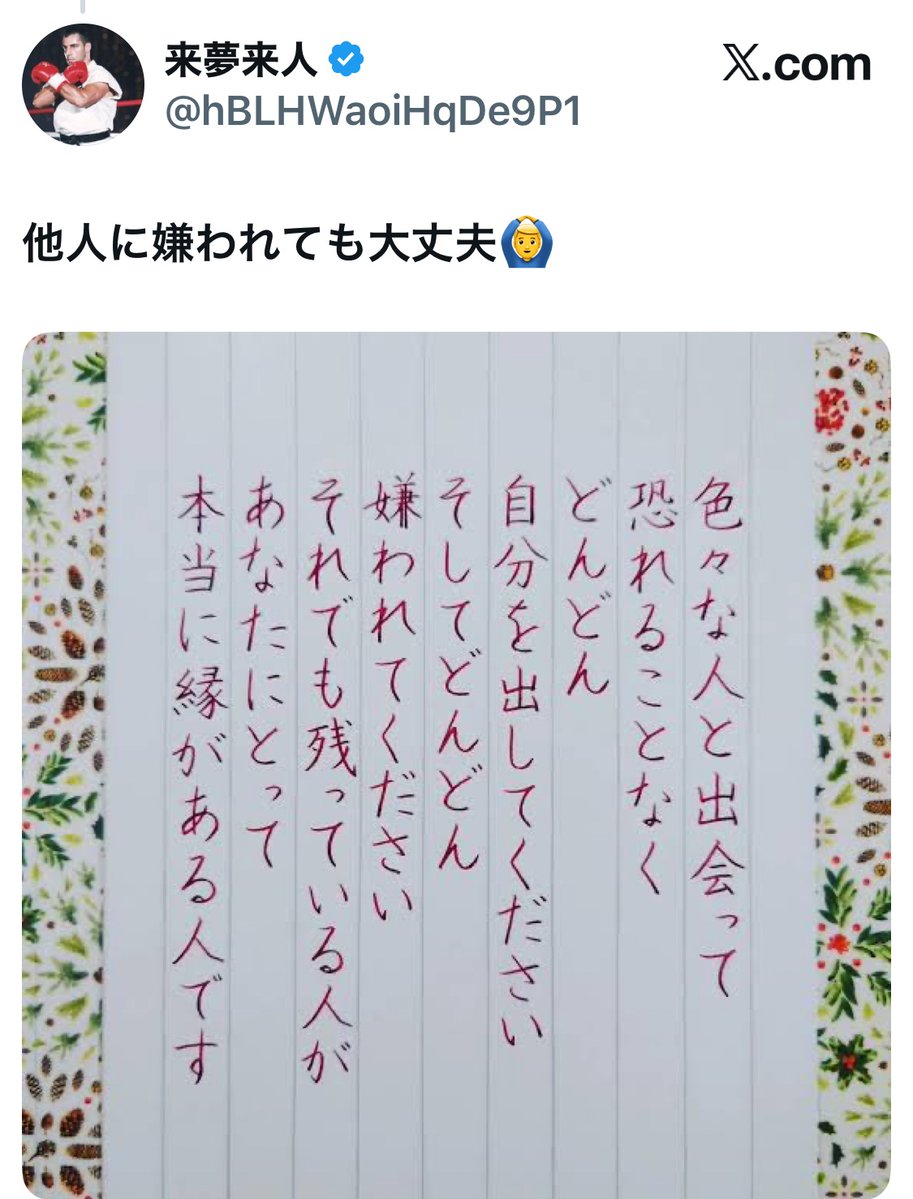 来夢来人
@hBLHWaoiHqDe9P1
X.com
他人に嫌われても大丈夫🙆
色々な人と出会って
恐れることなく
どんどん
自分を出してください
そしてどんどん
嫌われてください
それでも残っている人が
あなたにとって
本当に縁がある人です